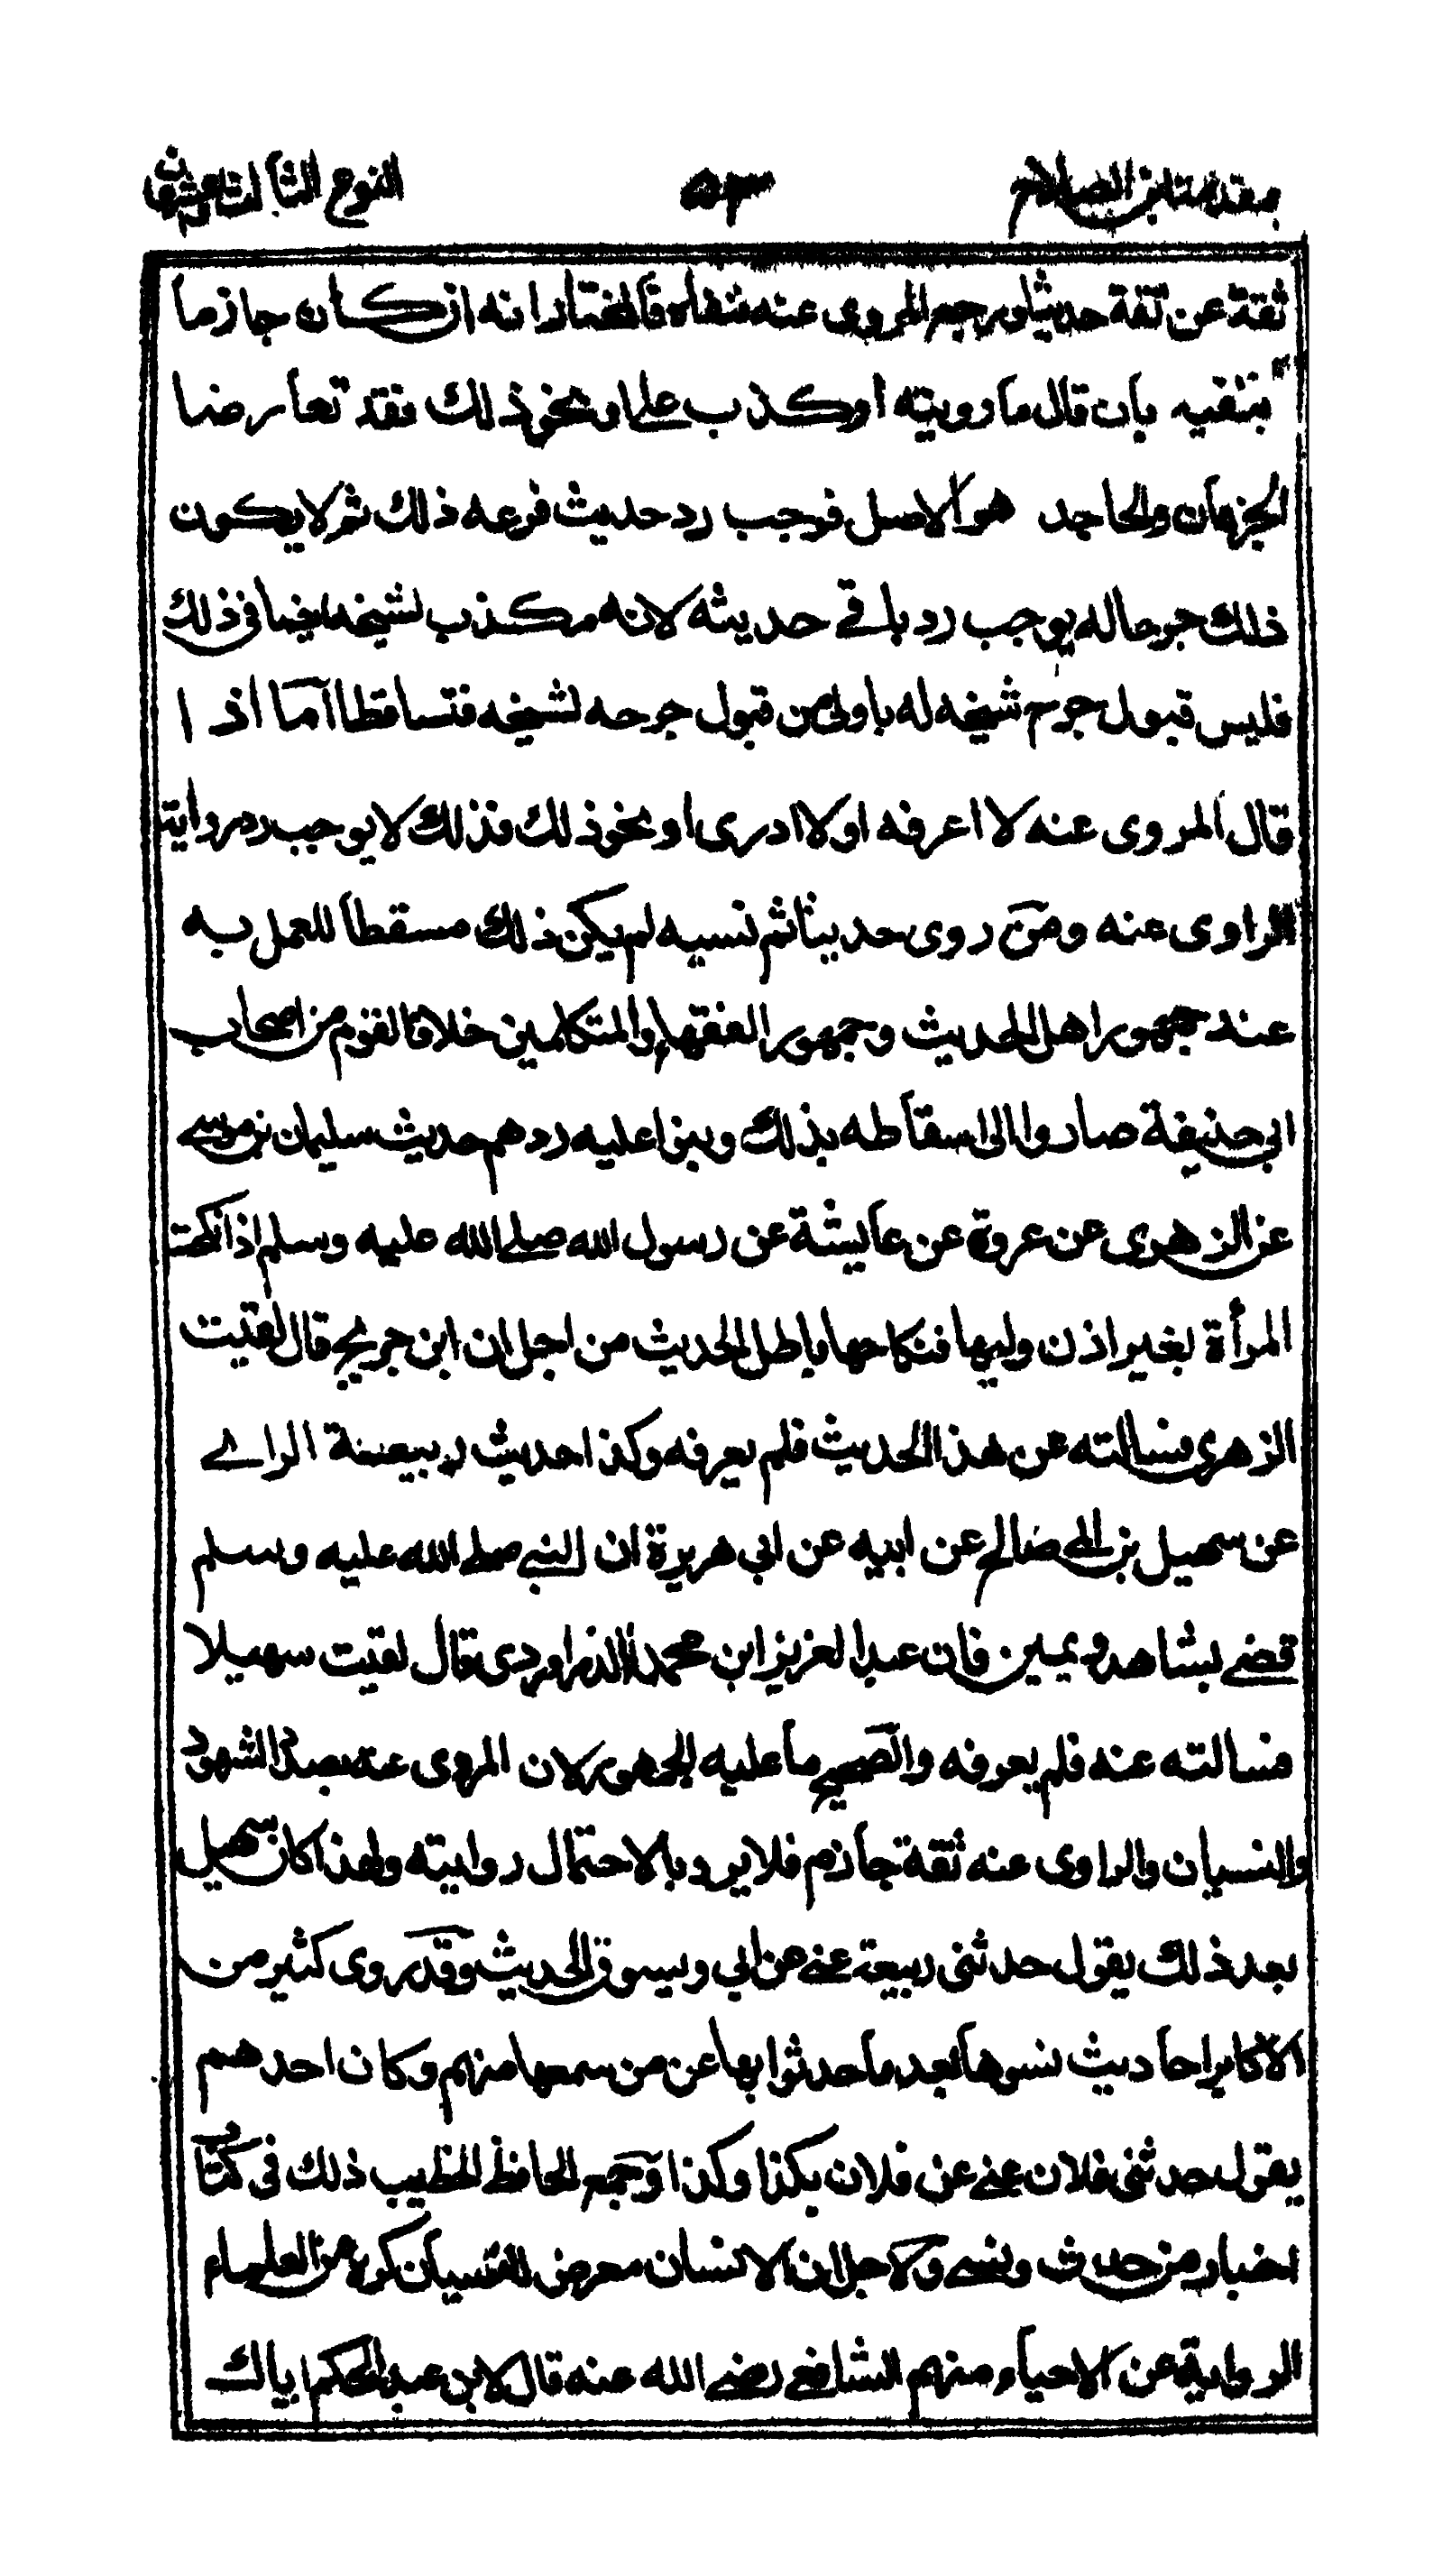 مقدمة ابن الصلاح ٥٣ النوع الثالث والعشرون
ثقة عن ثقة حديثا ورجع المروى عنه فنفاه فالمختار انه ان كان جازما
بنفيه بان قال ما رويته او كذب على او نحو ذلك فقد تعارضا
الجزمان والجاحد هو الاصل فوجب رد حديث فرعه ذلك ثم لا يكون
ذلك جرحا له يوجب رد باقى حديثه لانه مكذب لشيخه ايضا فى ذلك
فليس قبول جرح شيخه له باولى من قبول جرحه لشيخه فتساقطا اما اذا
قال المروى عنه لا اعرفه او لا ادرى او نحو ذلك فذلك لا يوجب رد رواية
الراوى عنه ومن روى حديثا ثم نسيه لم يكن ذلك مسقطا للعمل به
عند جمهور اهل الحديث وجمهور الفقهاء والمتكلمين خلافا لقوم من اصحاب
ابى حنيفة صاروا الى اسقاطه بذلك وبنوا عليه ردهم حديث سليمان بن موسے
عن الزهرى عن عروة عن عايشة عن رسول الله صلے الله عليه وسلم اذا نكحت
المرأة بغير اذن وليها فنكاحها باطل الحديث من اجل ان ابن جريج قال لقيت
الزهرى فسالته عن هذا الحديث فلم يعرفه وكذا حديث ربيعة الراے
عن سهيل بن ابى صالح عن ابيه عن ابى هريرة ان النبے صلے الله عليه وسلم
قضے بشاهد ويمين فان عبد العزيز ابن محمد الدراوردى قال لقيت سهيلا
فسالته عنه فلم يعرفه والصحيح ما عليه الجمهور لان المروى عنه بصدد السهو
والنسيان والراوى عنه ثقة جازم فلا يرد بالاحتمال روايته ولهذا كان سهيل
بعد ذلك يقول حدثنى ربيعة عنے عن ابى ويسوق الحديث وقد روى كثير من
الاكابر احاديث نسوها بعد ما حدثوا بها عن من سمعها منهم وكان احدهم
يقول حدثنى فلان عنے عن فلان بكذا وكذا وجمع الحافظ الخطيب ذلك فى كتاب
اخبار من حدث ونسے ولاجل ان الانسان معرض للنسيان كره من العلماء
الرواية عن الاحياء منهم الشافعے رضے الله عنه قال لابن عبد الحكم اياك